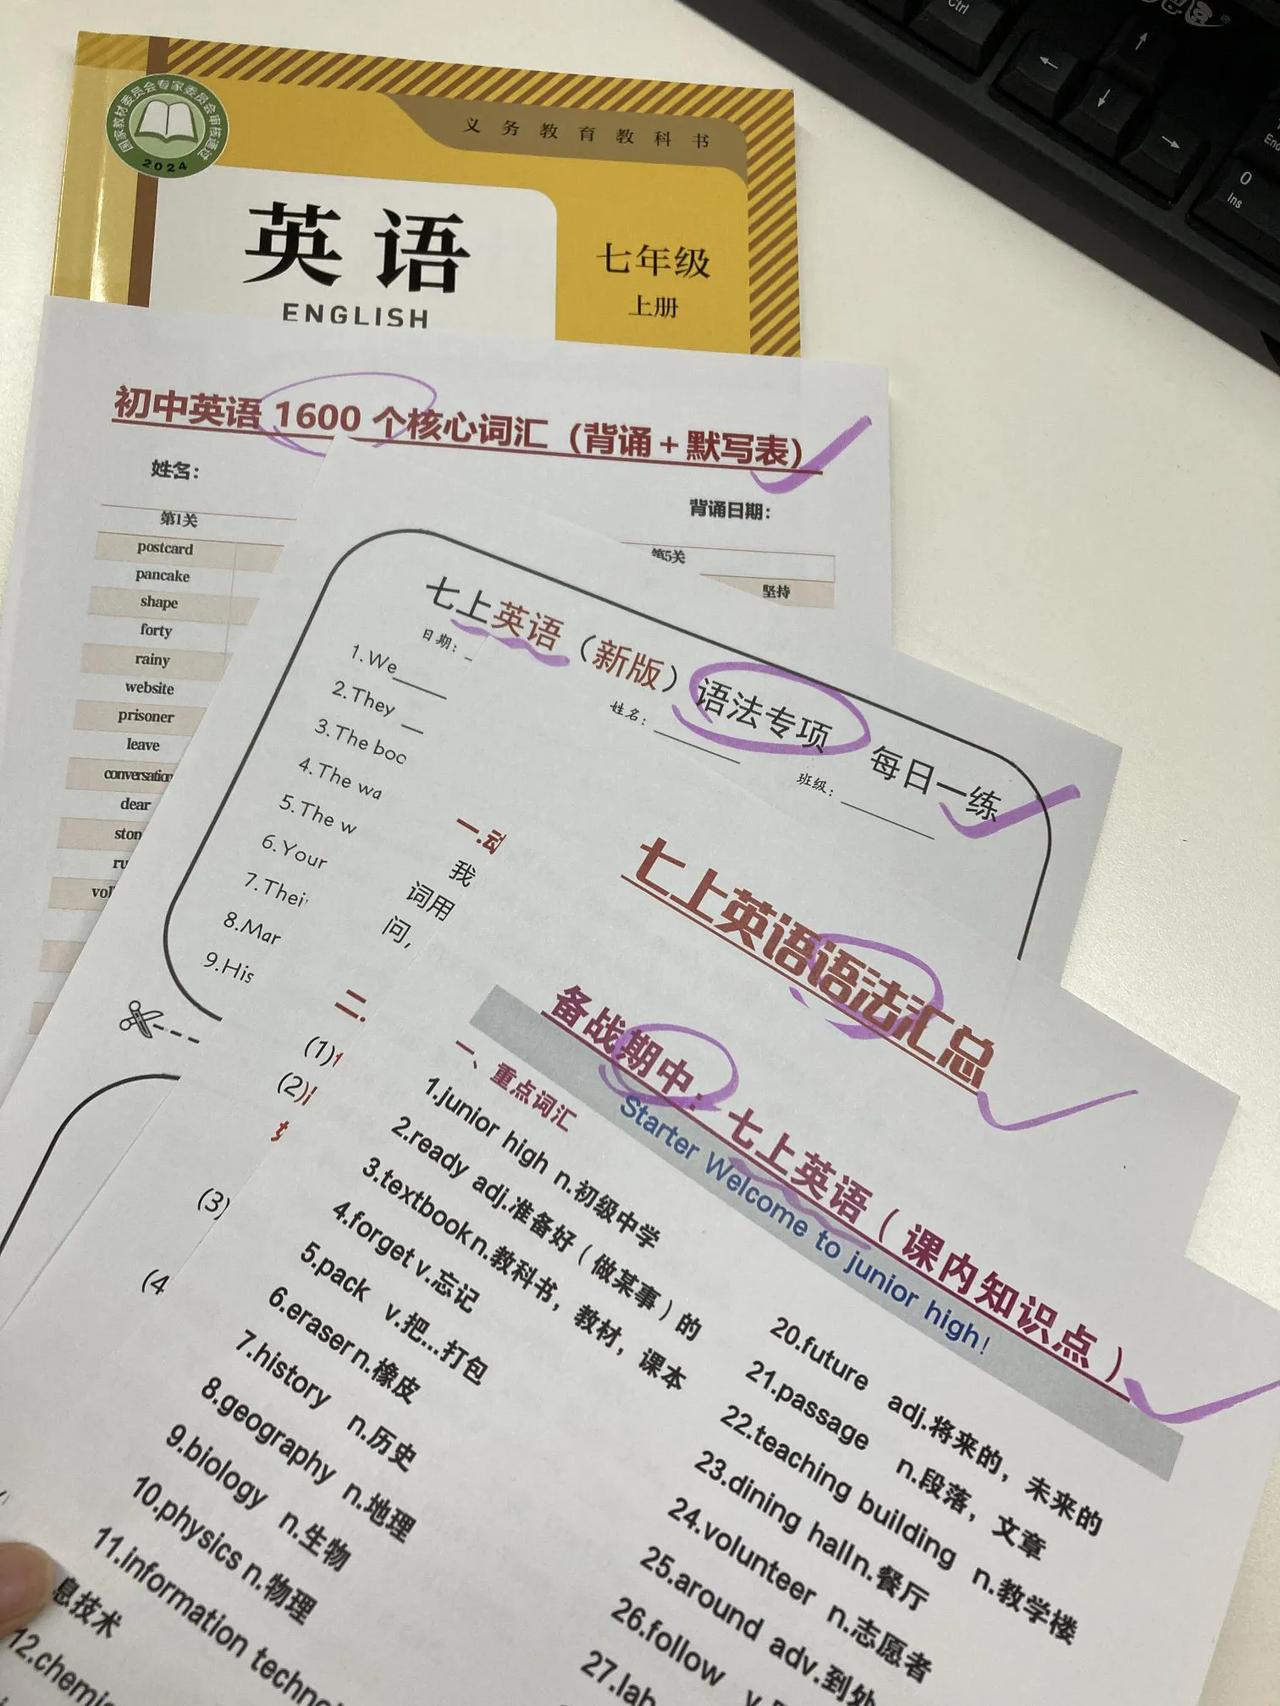 国家教材委员会专家委员会审核通过
2024
义务教育教科书
英语
ENGLISH
七年级
上册
初中英语 1600 个核心词汇（背诵+默写表）
姓名:
背诵日期:
第1关
第5关
postcard
坚持
pancake
shape
forty
rainy
website
prisoner
leave
conversation
dear
七上英语（新版）语法专项 每日一练
日期:
姓名:
班级:
1.We
2.They
3.The boo
4.The wa
5.The w
6.Your
7.Thei
8.Mar
9.His
七上英语语法汇总
一.动
我
词用
问,
二.
(1)
(2)
(3)
(4
备战期中：七上英语（课内知识点）
Starter Welcome to junior high!
一、重点词汇
1.junior high n.初级中学
2.ready adj.准备好（做某事）的
3.textbook n.教科书，教材，课本
4.forget v.忘记
5.pack v.把...打包
6.eraser n.橡皮
7.history n.历史
8.geography n.地理
9.biology n.生物
10.physics n.物理
11.information techno
息技术
12.chemis
20.future adj.将来的，未来的
21.passage n.段落，文章
22.teaching building n.教学楼
23.dining hall n.餐厅
24.volunteer n.志愿者
25.around adv.到处
26.follow v.
27.lab
Ctrl
End
0
Ins